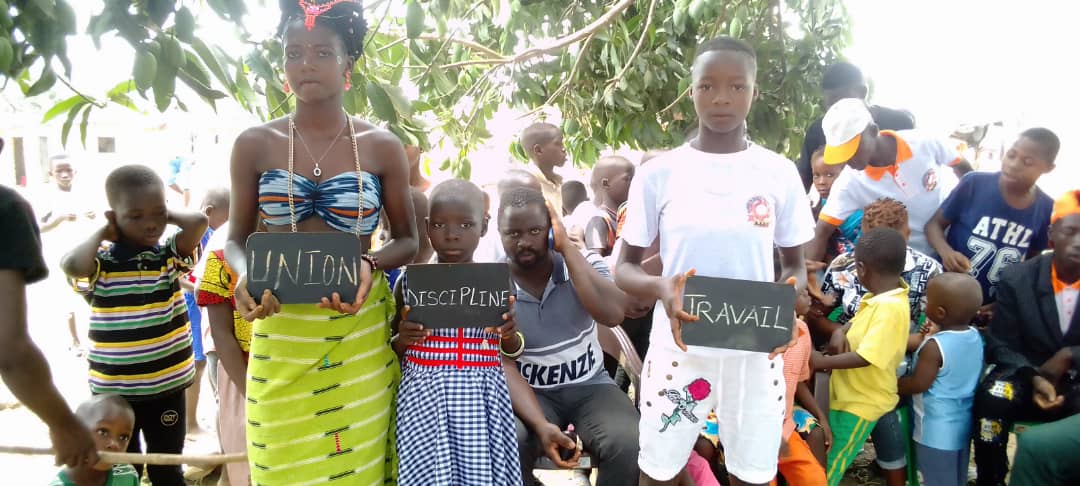 UNION
DISCIPLINE
TRAVAIL
McKENZIE
ATHL
76